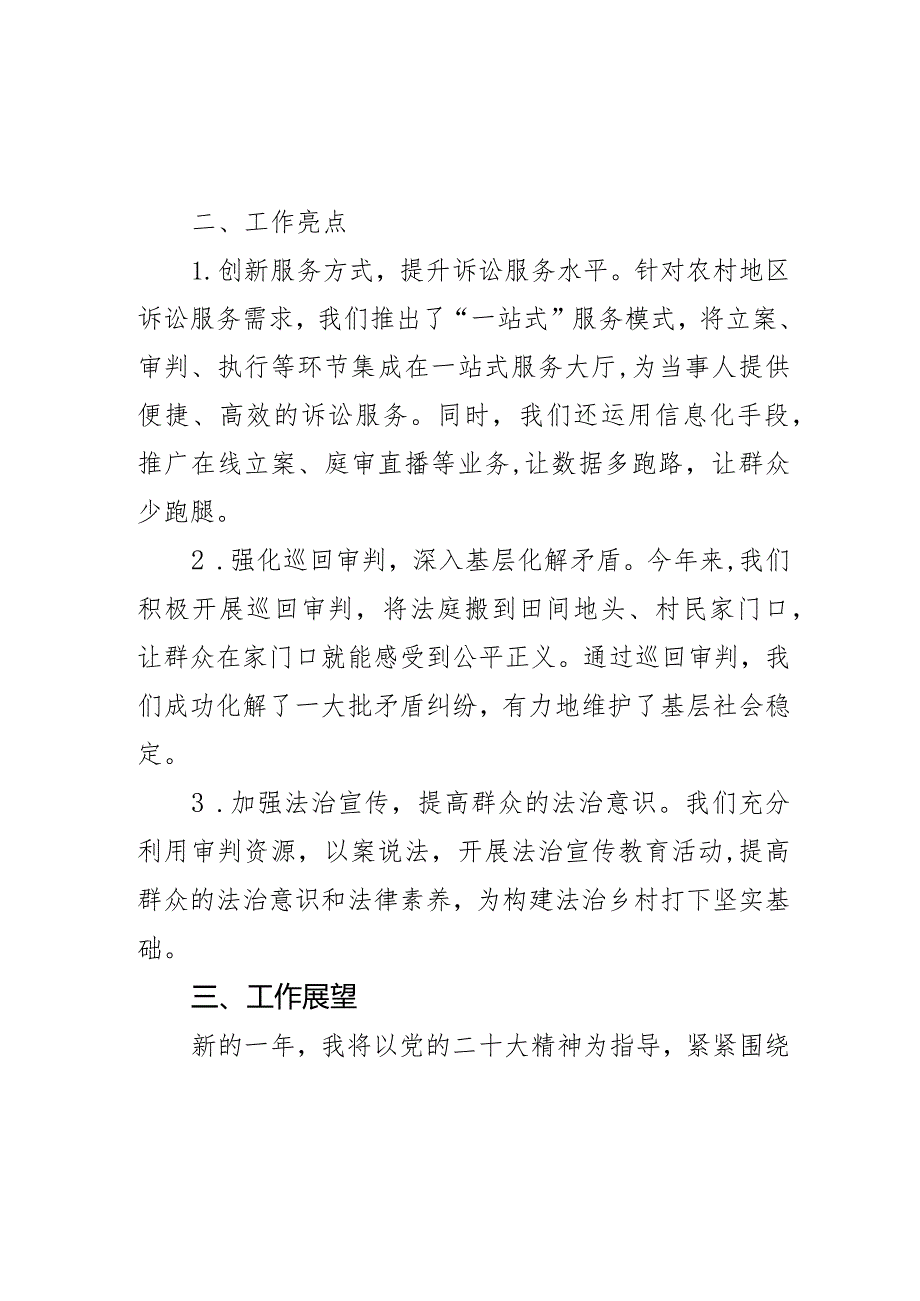 二、工作亮点
1.创新服务方式，提升诉讼服务水平。针对农村地区
诉讼服务需求，我们推出了“一站式”服务模式，将立案、
审判、执行等环节集成在一站式服务大厅,为当事人提供
便捷、高效的诉讼服务。同时，我们还运用信息化手段，
推广在线立案、庭审直播等业务,让数据多跑路，让群众
少跑腿。
2 .强化巡回审判，深入基层化解矛盾。今年来,我们
积极开展巡回审判，将法庭搬到田间地头、村民家门口，
让群众在家门口就能感受到公平正义。通过巡回审判，我
们成功化解了一大批矛盾纠纷，有力地维护了基层社会稳
定。
3 .加强法治宣传，提高群众的法治意识。我们充分
利用审判资源，以案说法，开展法治宣传教育活动,提高
群众的法治意识和法律素养，为构建法治乡村打下坚实基
础。
三、工作展望
新的一年，我将以党的二十大精神为指导，紧紧围绕